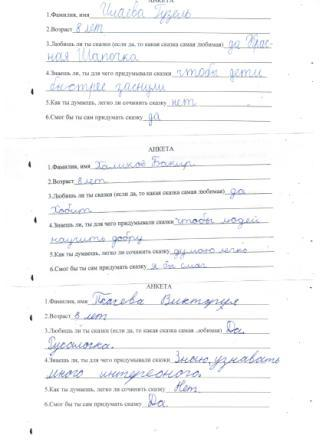 АНКЕТА
1.Фамилия, имя Ишаева Гузель
2.Возраст 8 лет
3.Любишь ли ты сказки (если да, то какая сказка самая любимая) да Крас-
ная Шапочка
4.Знаешь ли, ты для чего придумывали сказки чтобы дети
быстрее заснули
5.Как ты думаешь, легко ли сочинить сказку нет
6.Смог бы ты сам придумать сказку да
АНКЕТА
1.Фамилия, имя Халиков Бакир
2.Возраст 8 лет
3.Любишь ли ты сказки (если да, то какая сказка самая любимая) да
Хобит
4.Знаешь ли, ты для чего придумывали сказки чтобы людей
научить добру
5.Как ты думаешь, легко ли сочинить сказку думаю легко
6.Смог бы ты сам придумать сказку я бы смог
АНКЕТА
1.Фамилия, имя Ткачева Виктория
2.Возраст 8 лет
3.Любишь ли ты сказки (если да, то какая сказка самая любимая) Да.
Русалочка.
4.Знаешь ли, ты для чего придумывали сказки Знаю, узнавать
много интересного.
5.Как ты думаешь, легко ли сочинить сказку Нет.
6.Смог бы ты сам придумать сказку Да.